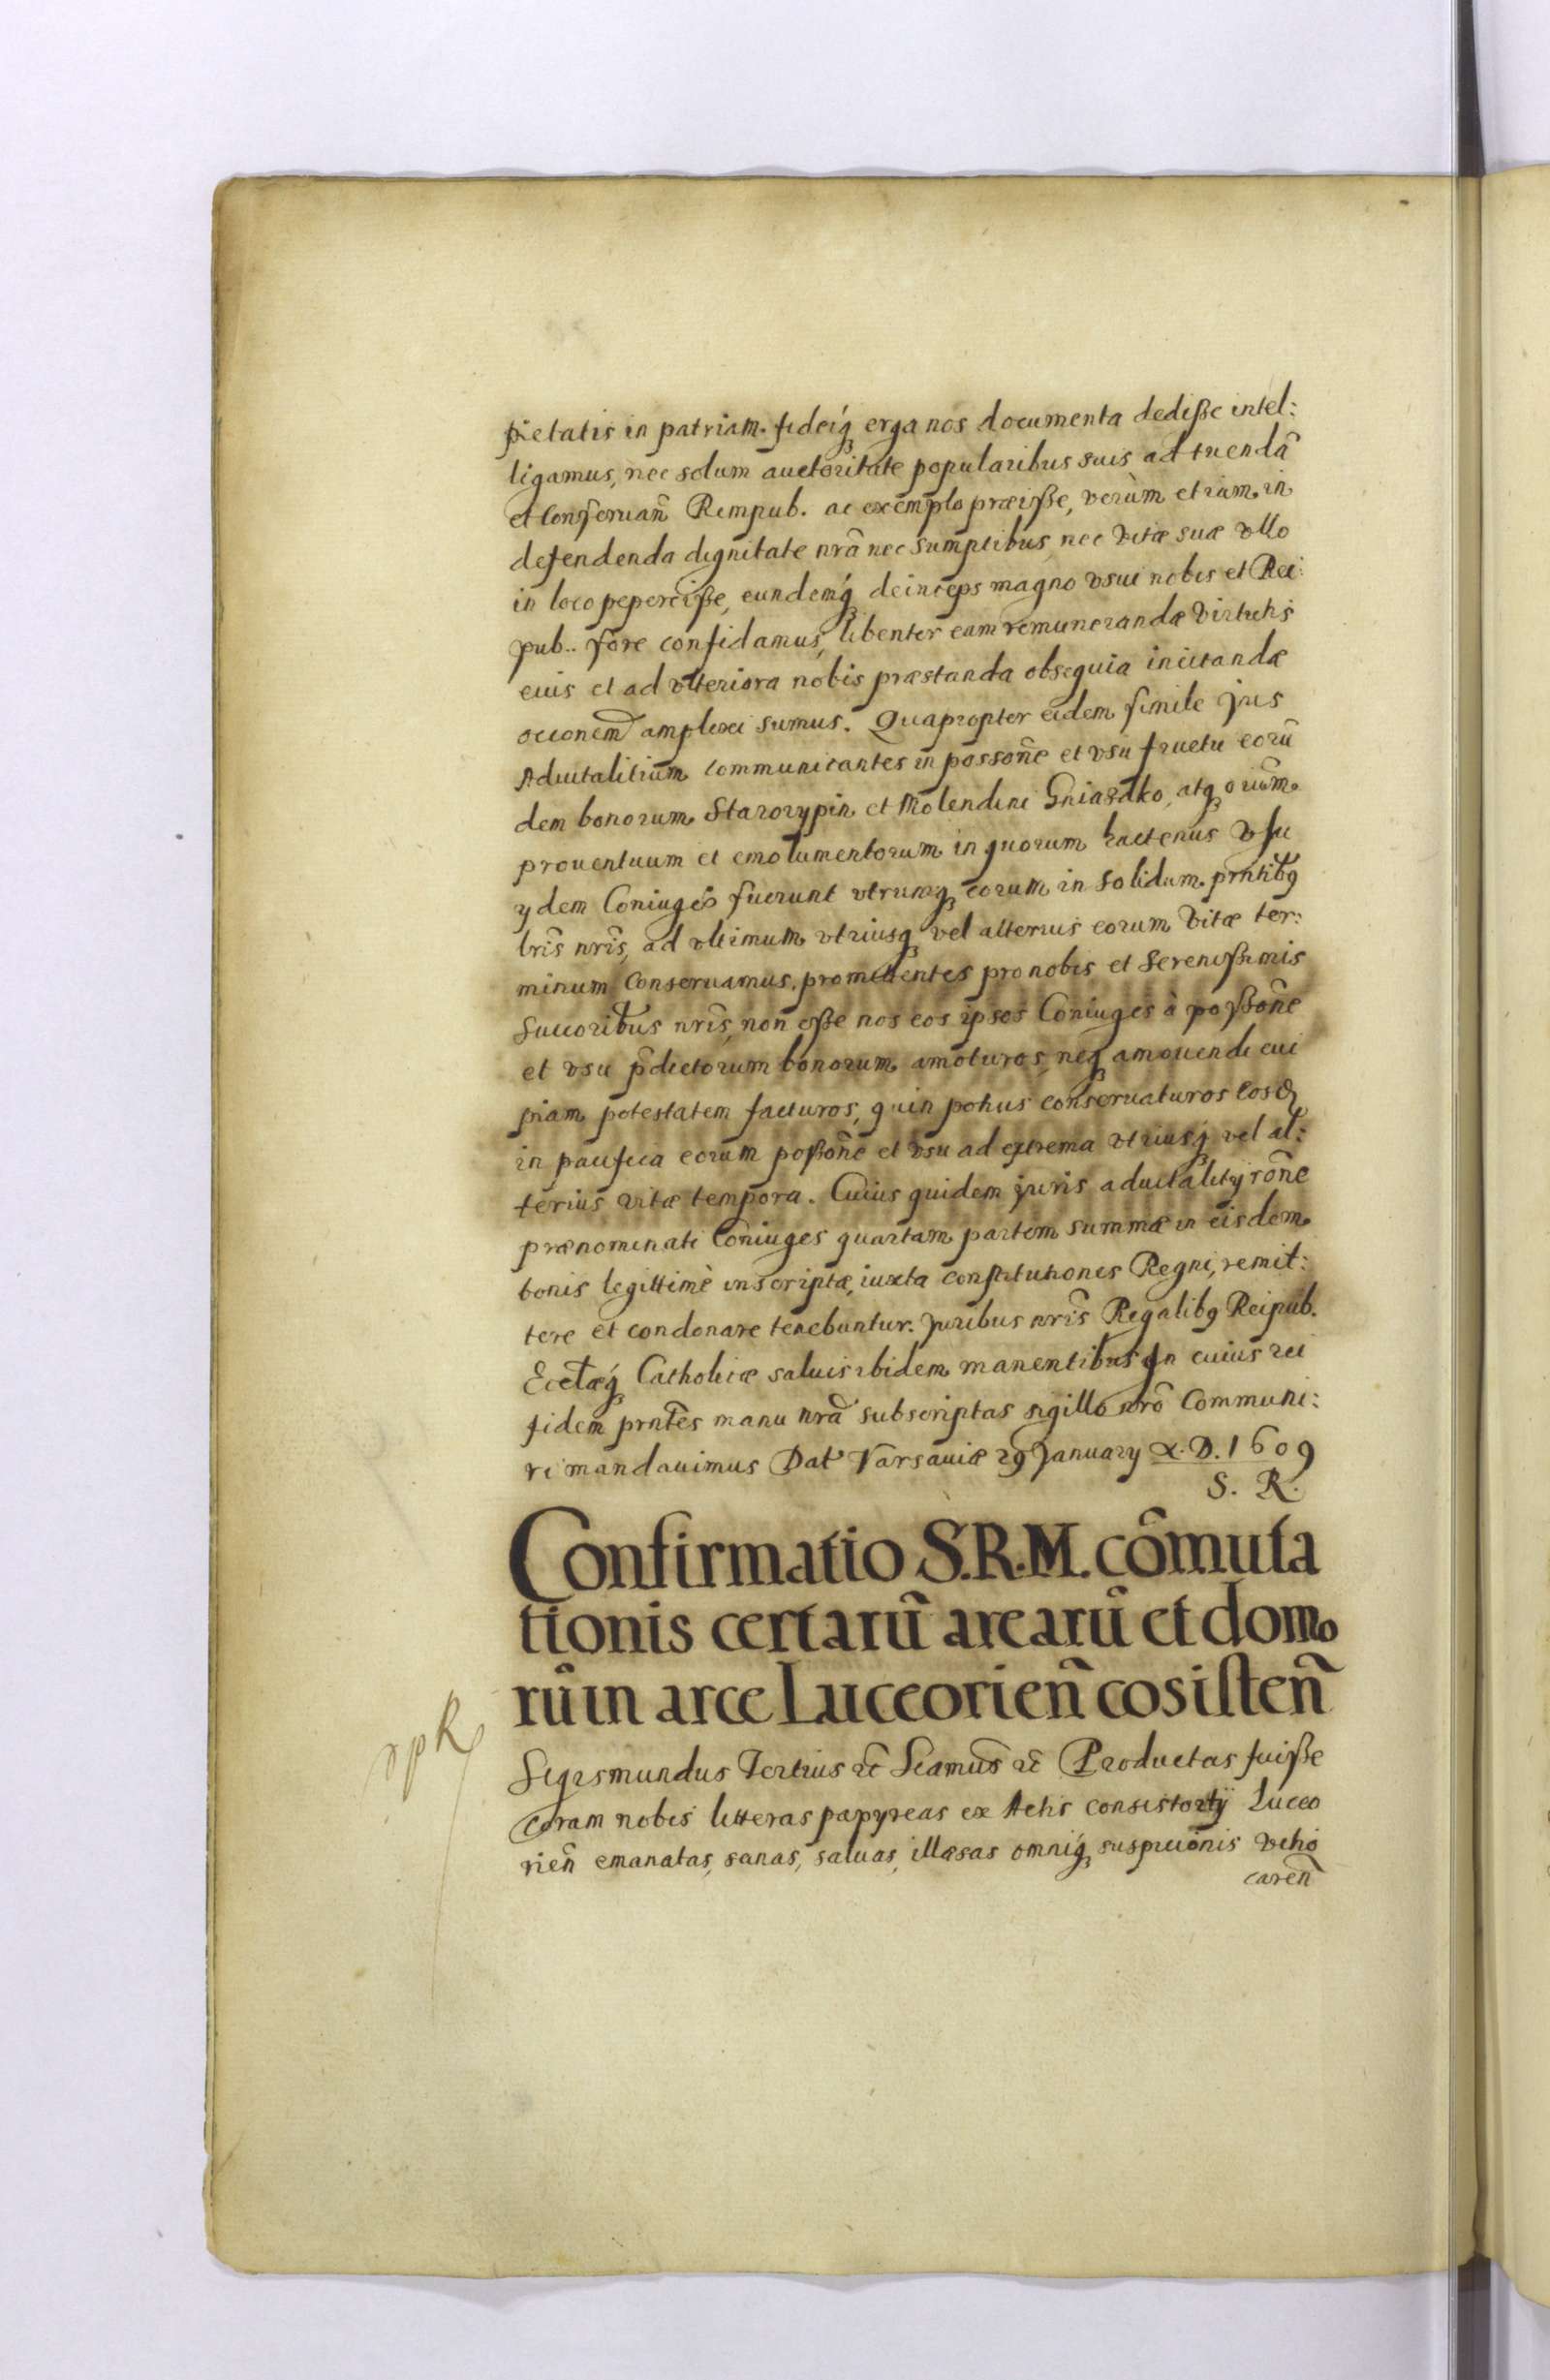 pietatis in patriam fideiq́ꝫ erga nos documenta dediße intel:
ligamus, nec solum auctoritate popularibus suis ad tuendã
et conseruañ Rempub. ac exemplo præiße, verùm etiam in
defendenda dignitate nrã nec sumptibus nec vitæ suæ vllo
in loco peperciße, eundemq́ꝫ deinceps magno vsui nobis et Rei:
pub.. fore confidamus, libenter eam remunerandæ virtutis
eius et ad vlteriora nobis præstanda obsequia incitandæ
occionem̃ amplexi sumus. Quapropter eidem simile Jus
Aduitalitium communicantes in possoñe et vsu fructu eorũ
dem bonorum Starorypin et Molendini Gniazdko, atqꝫ oium̃
prouentuum et emolumentorum in quorum hactenus vsu
ydem Coniuges fuerunt vtrumqꝫ eorum in solidum prñtibꝯ
lrĩs nrĩs, ad vltimum vtriusqꝫ vel alterius eorum vitæ ter:
minum conseruamus, promittentes pro nobis et Serenißimis
Succoribus nrĩs, non eße nos eos ipsos Coniuges à poßoñe
et vsu p̃dictorum bonorum amoturos, neqꝫ amouendi cui
piam potestatem facturos, quin potius conseruaturos eosđ
in pacifica eorum poßoñe et vsu ad extrema vtriusq́ꝫ vel al:
terius vitæ tempora. Cuius quidem juris aduitalitij rõne
prænominati Coniuges quartam partem summæ in eisdem
bonis legittimè inscriptæ, iuxta constitutiones Regni, remit:
tere et condonare tenebuntur. Juribus nrĩs Regalibꝯ Reipub.
Ecctæq́ꝫ Catholicæ saluis ibidem manentibus In cuius rei
fidem prñtes manu nrã subscriptas sigillo nrõ Communi:
ri mandauimus Dat Varsauiæ 29 January A.D. 1609
S. R.
Confirmatio S.R.M. cõmuta
tionis certarũ arearũ et domo
rũ in arce Luceorieñ cosisteñ
Sigismundus Tertius etc̃ Sciamus̃ etc̃ Productas fuiße
coram nobis litteras papyreas ex Actis consistorij Luceo
rieñ emanatas, sanas, saluas, illæsas omniq́ꝫ suspicionis vitio
careñ